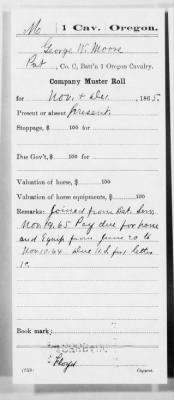 M | 1 Cav. | Oregon.
George W. Moore
Pvt, Co. C, Batt'n 1 Oregon Cavalry.
Company Muster Roll
for Nov. & Dec., 1865.
Present or absent Present
Stoppage, $ 100 for
Due Gov't, $ 100 for
Valuation of horse, $ 100
Valuation of horse equipments, $ 100
Remarks: Joined from Det. Serv.
Nov. 19. 65. Pay due for horse
and Equip. from June 20 to
Nov. 10. 64 Due U.S. for letter
Book mark:
(758) Copyist.